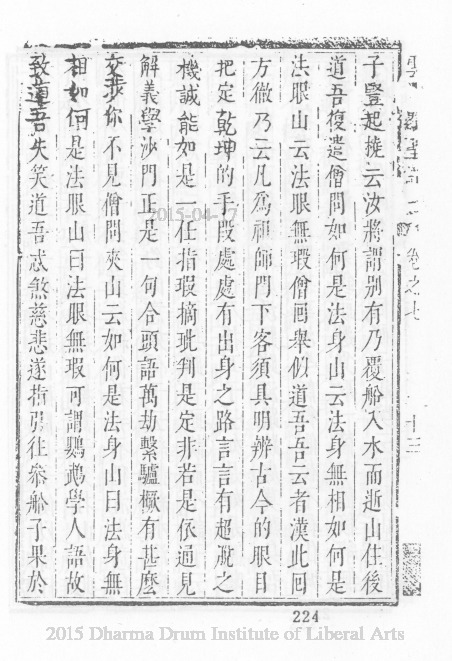 子豎起橈云汝將謂別有乃覆船入水而逝山住後
道吾復遣僧問如何是法身山云法身無相如何是
法眼山云法眼無瑕僧回舉似道吾吾云者漢此回
方徹乃云凡為祖師門下客須具明辨古今的眼目
把定乾坤的手段處處有出身之路言言有超脫之
機誠能如是一任指瑕摘玼判是定非若是依通見
解義學沙門正是一句合頭語萬劫繫驢橛有甚麼
交涉你不見僧問夾山云如何是法身山曰法身無
相如何是法眼山曰法眼無瑕可謂鸚鵡學人語故
致道吾失笑道吾忒煞慈悲遂指引往參船子果於
卷之七
十三
224
2015-04-17
2015 Dharma Drum Institute of Liberal Arts